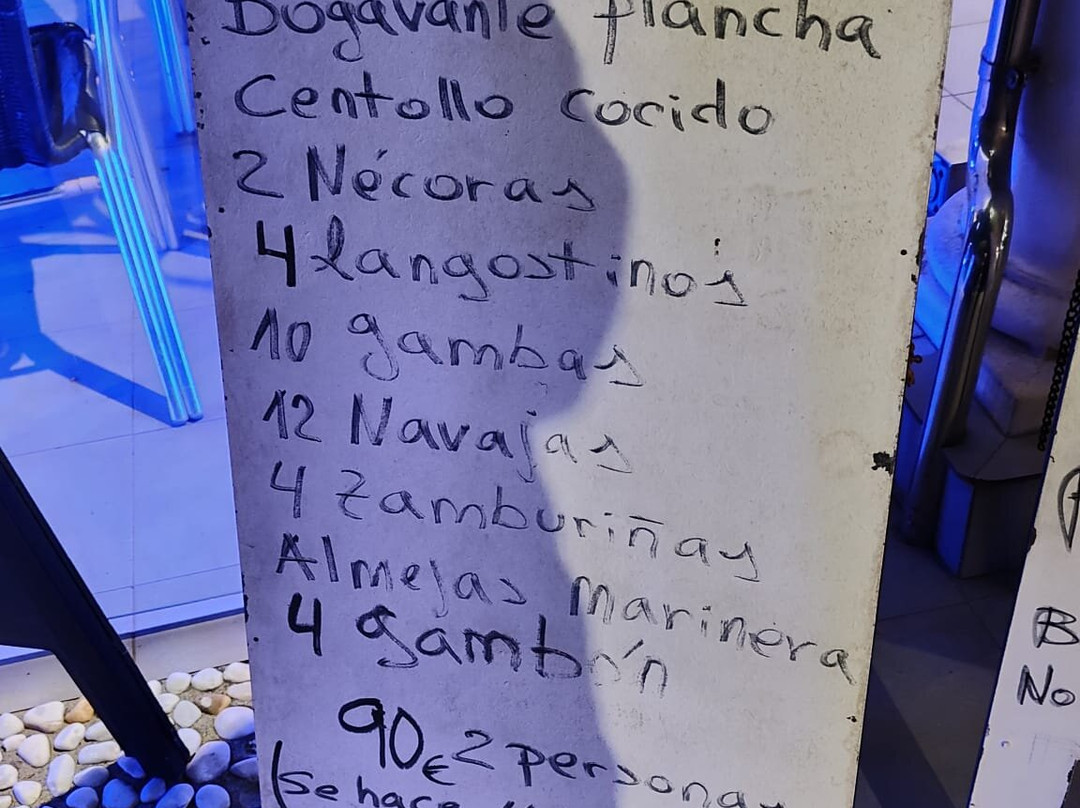 Bogavante plancha
Centollo cocido
2 Nécoras
4 langostinos
10 gambas
12 Navajas
4 Zamburiñas
Almejas Marinera
4 gambón
90€ 2 personas
(se hace
B
No